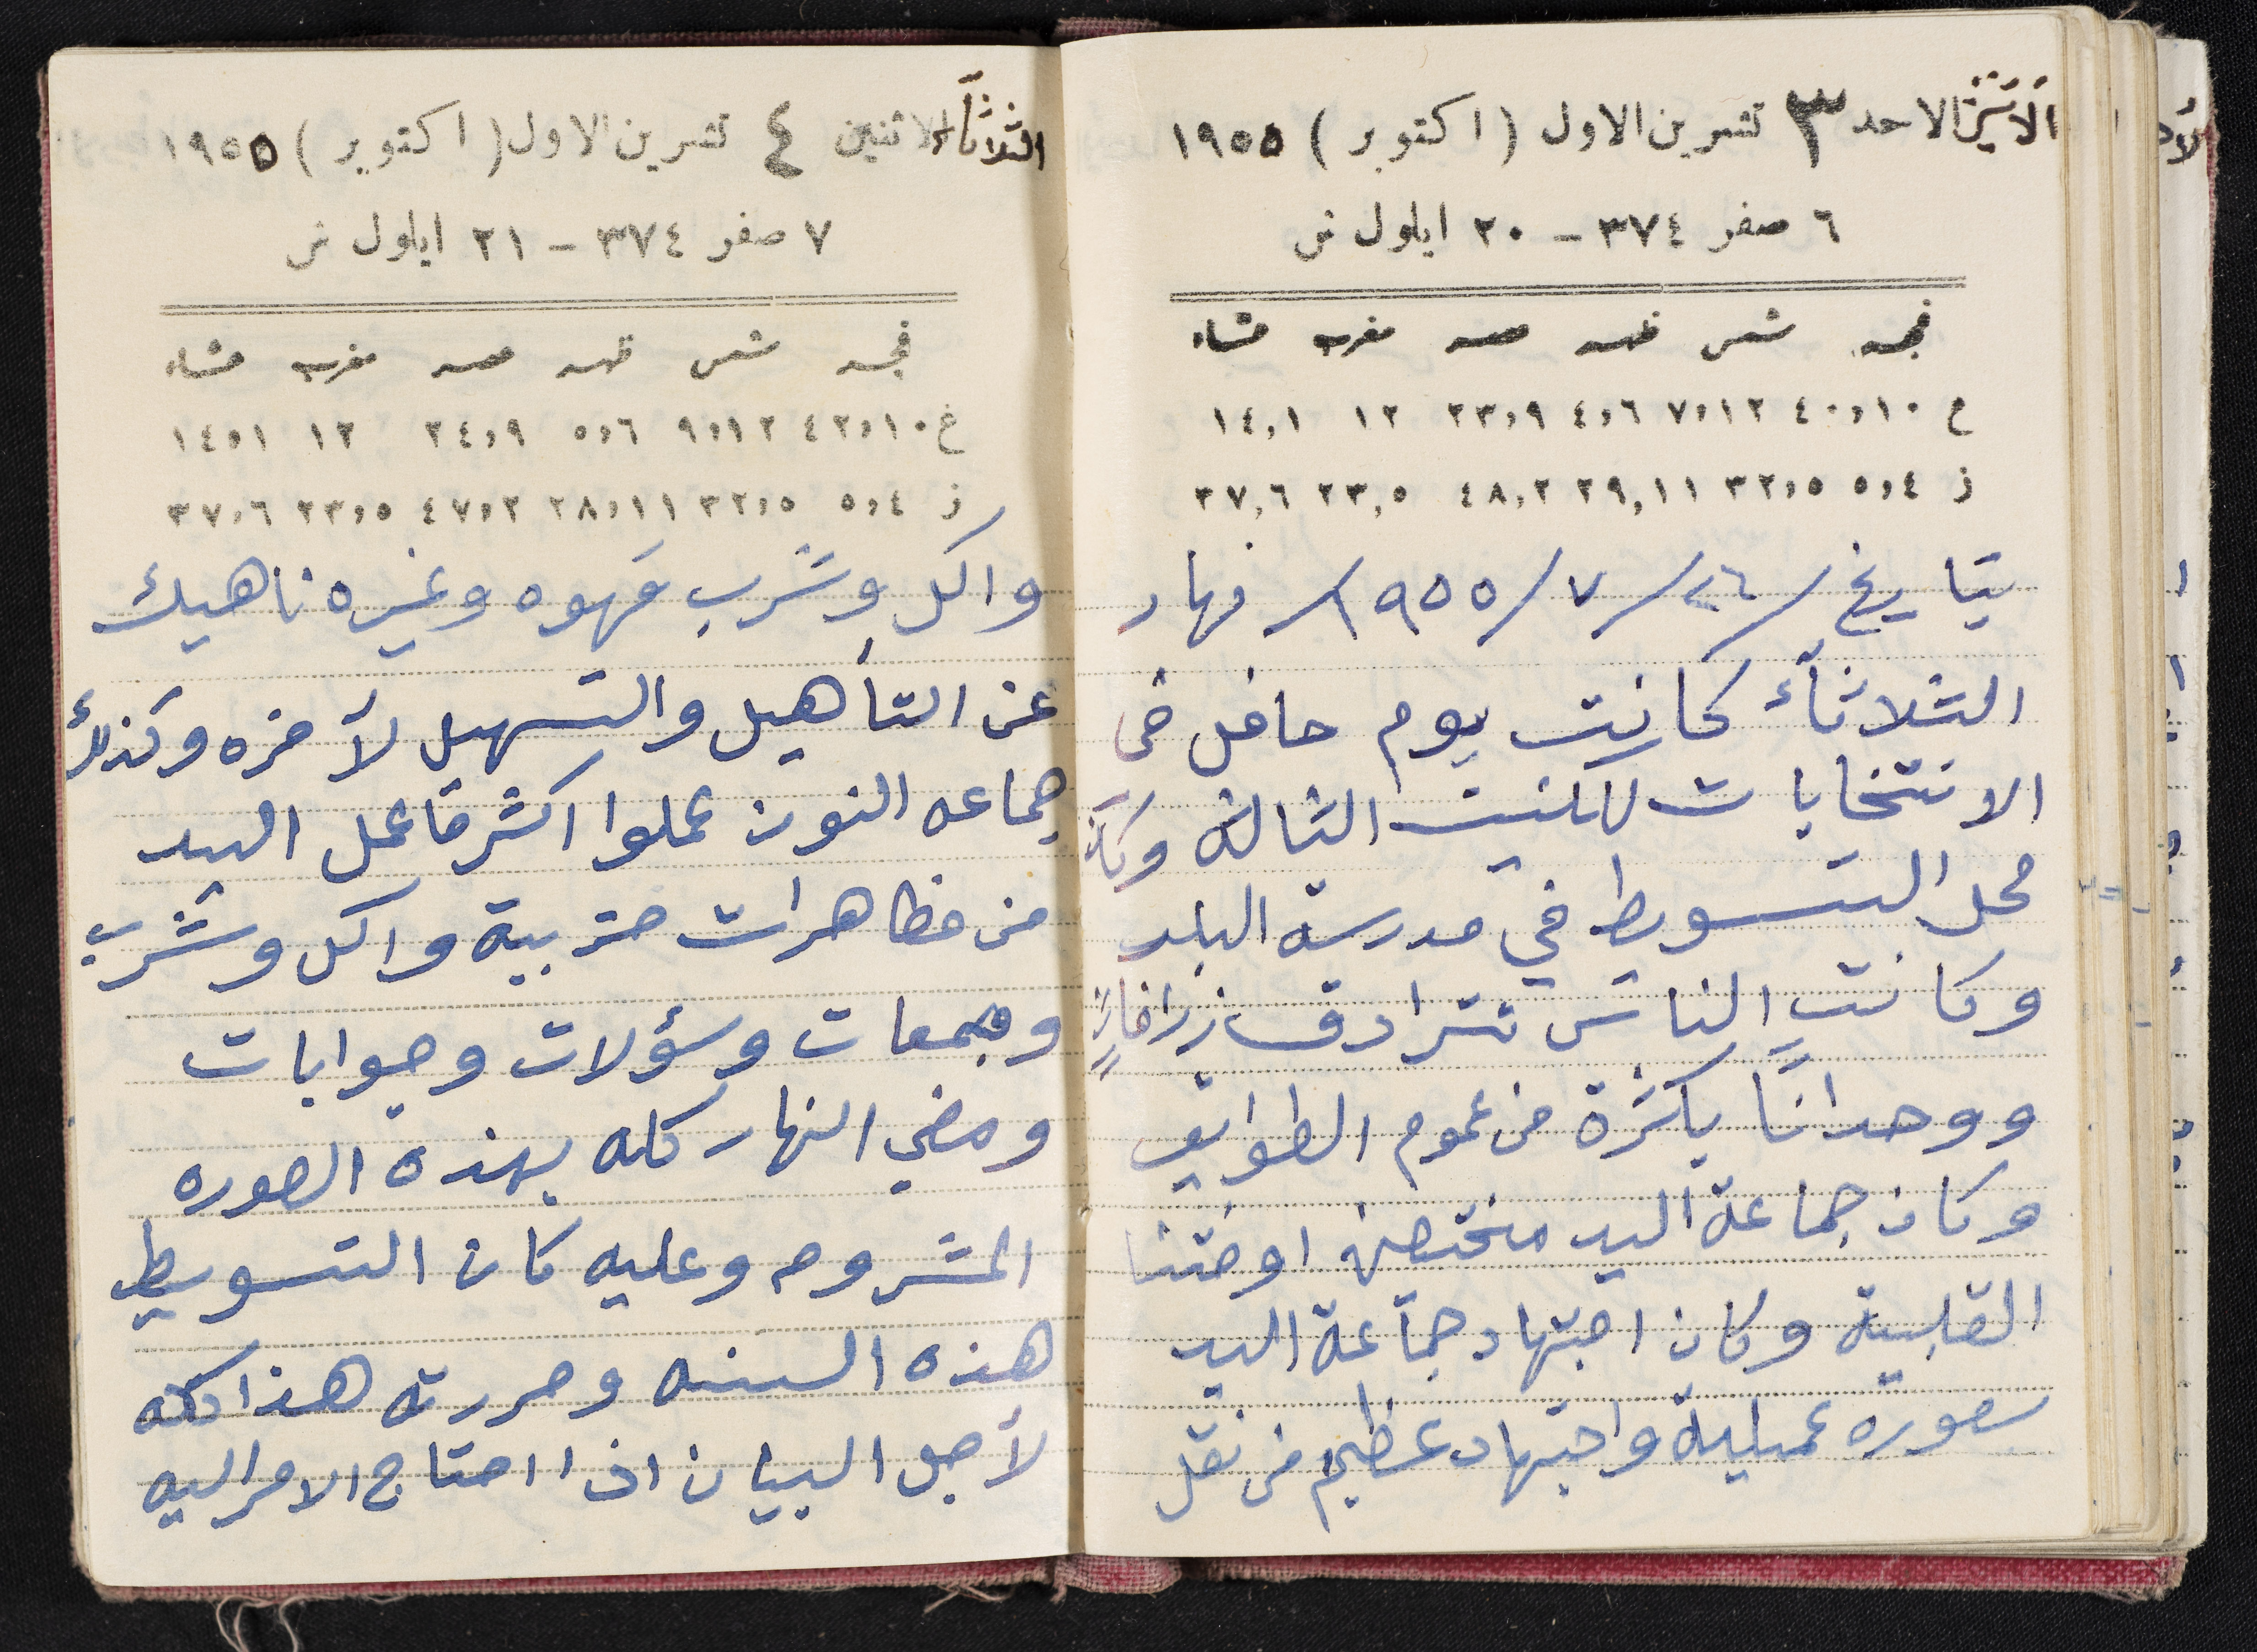 الاثنين الاحد ٣ تشرين الاول (اكتوبر) ١٩٥٥
٦ صفر ٣٧٤ - ٢٠ ايلول ش
فجر شمس ظهر عصر مغرب عشاء
غ ٤٠,١٠ ٧,١٢ ٤,٦ ٢٣,٩ ١٢ ١٤,١
ز ٥,٤ ٣٢,٥ ٢٩,١١ ٤٨,٢ ٢٣,٥ ٣٧,٦
بتاريخ /٢٦/٧/٩٥٥ نهار
الثلاثاء كانت يوم حافل في
الانتخابات للكنيست الثالثه وكان
محل التسويط في مدرسة البلد
وكانت الناس تترادف زرافاتٍ
ووحدانًا بكثرة من عموم الطوايف
وكان جماعة اليد اوضتنا
القلبية وكان اجتهاد جماعة اليد
بصوره عميلية واجتهاد عظيم من نقل
الثلاثاء الاثنين ٤ تشرين الاول (اكتوبر) ١٩٥٥
٧ صفر ٣٧٤ - ٢١ ايلول ش
فجر شمس ظهر عصر مغرب عشاء
غ ٤٢,١٠ ٩,١٢ ٥,٦ ٢٤,٩ ١٢ ١٤,١
ز ٥,٤ ٣٢,٥ ٢٨,١١ ٤٧,٢ ٢٣,٥ ٣٧,٦
واكل وشرب قهوه وغيره ناهيك
عن التأهيل والتسهيل لآخره وكذلك
جماعه النون عملوا اكثر ما عمل اليد
من مظاهرات حزبية واكل وشرب
وجمعات وسؤلات وجوابات
ومضي النهار كله بهذه الصوره
المشروح وعليه كان التسويط
هذه السنه وحررته هذا كله
لأجل البيان اذا احتاج الامر اليه